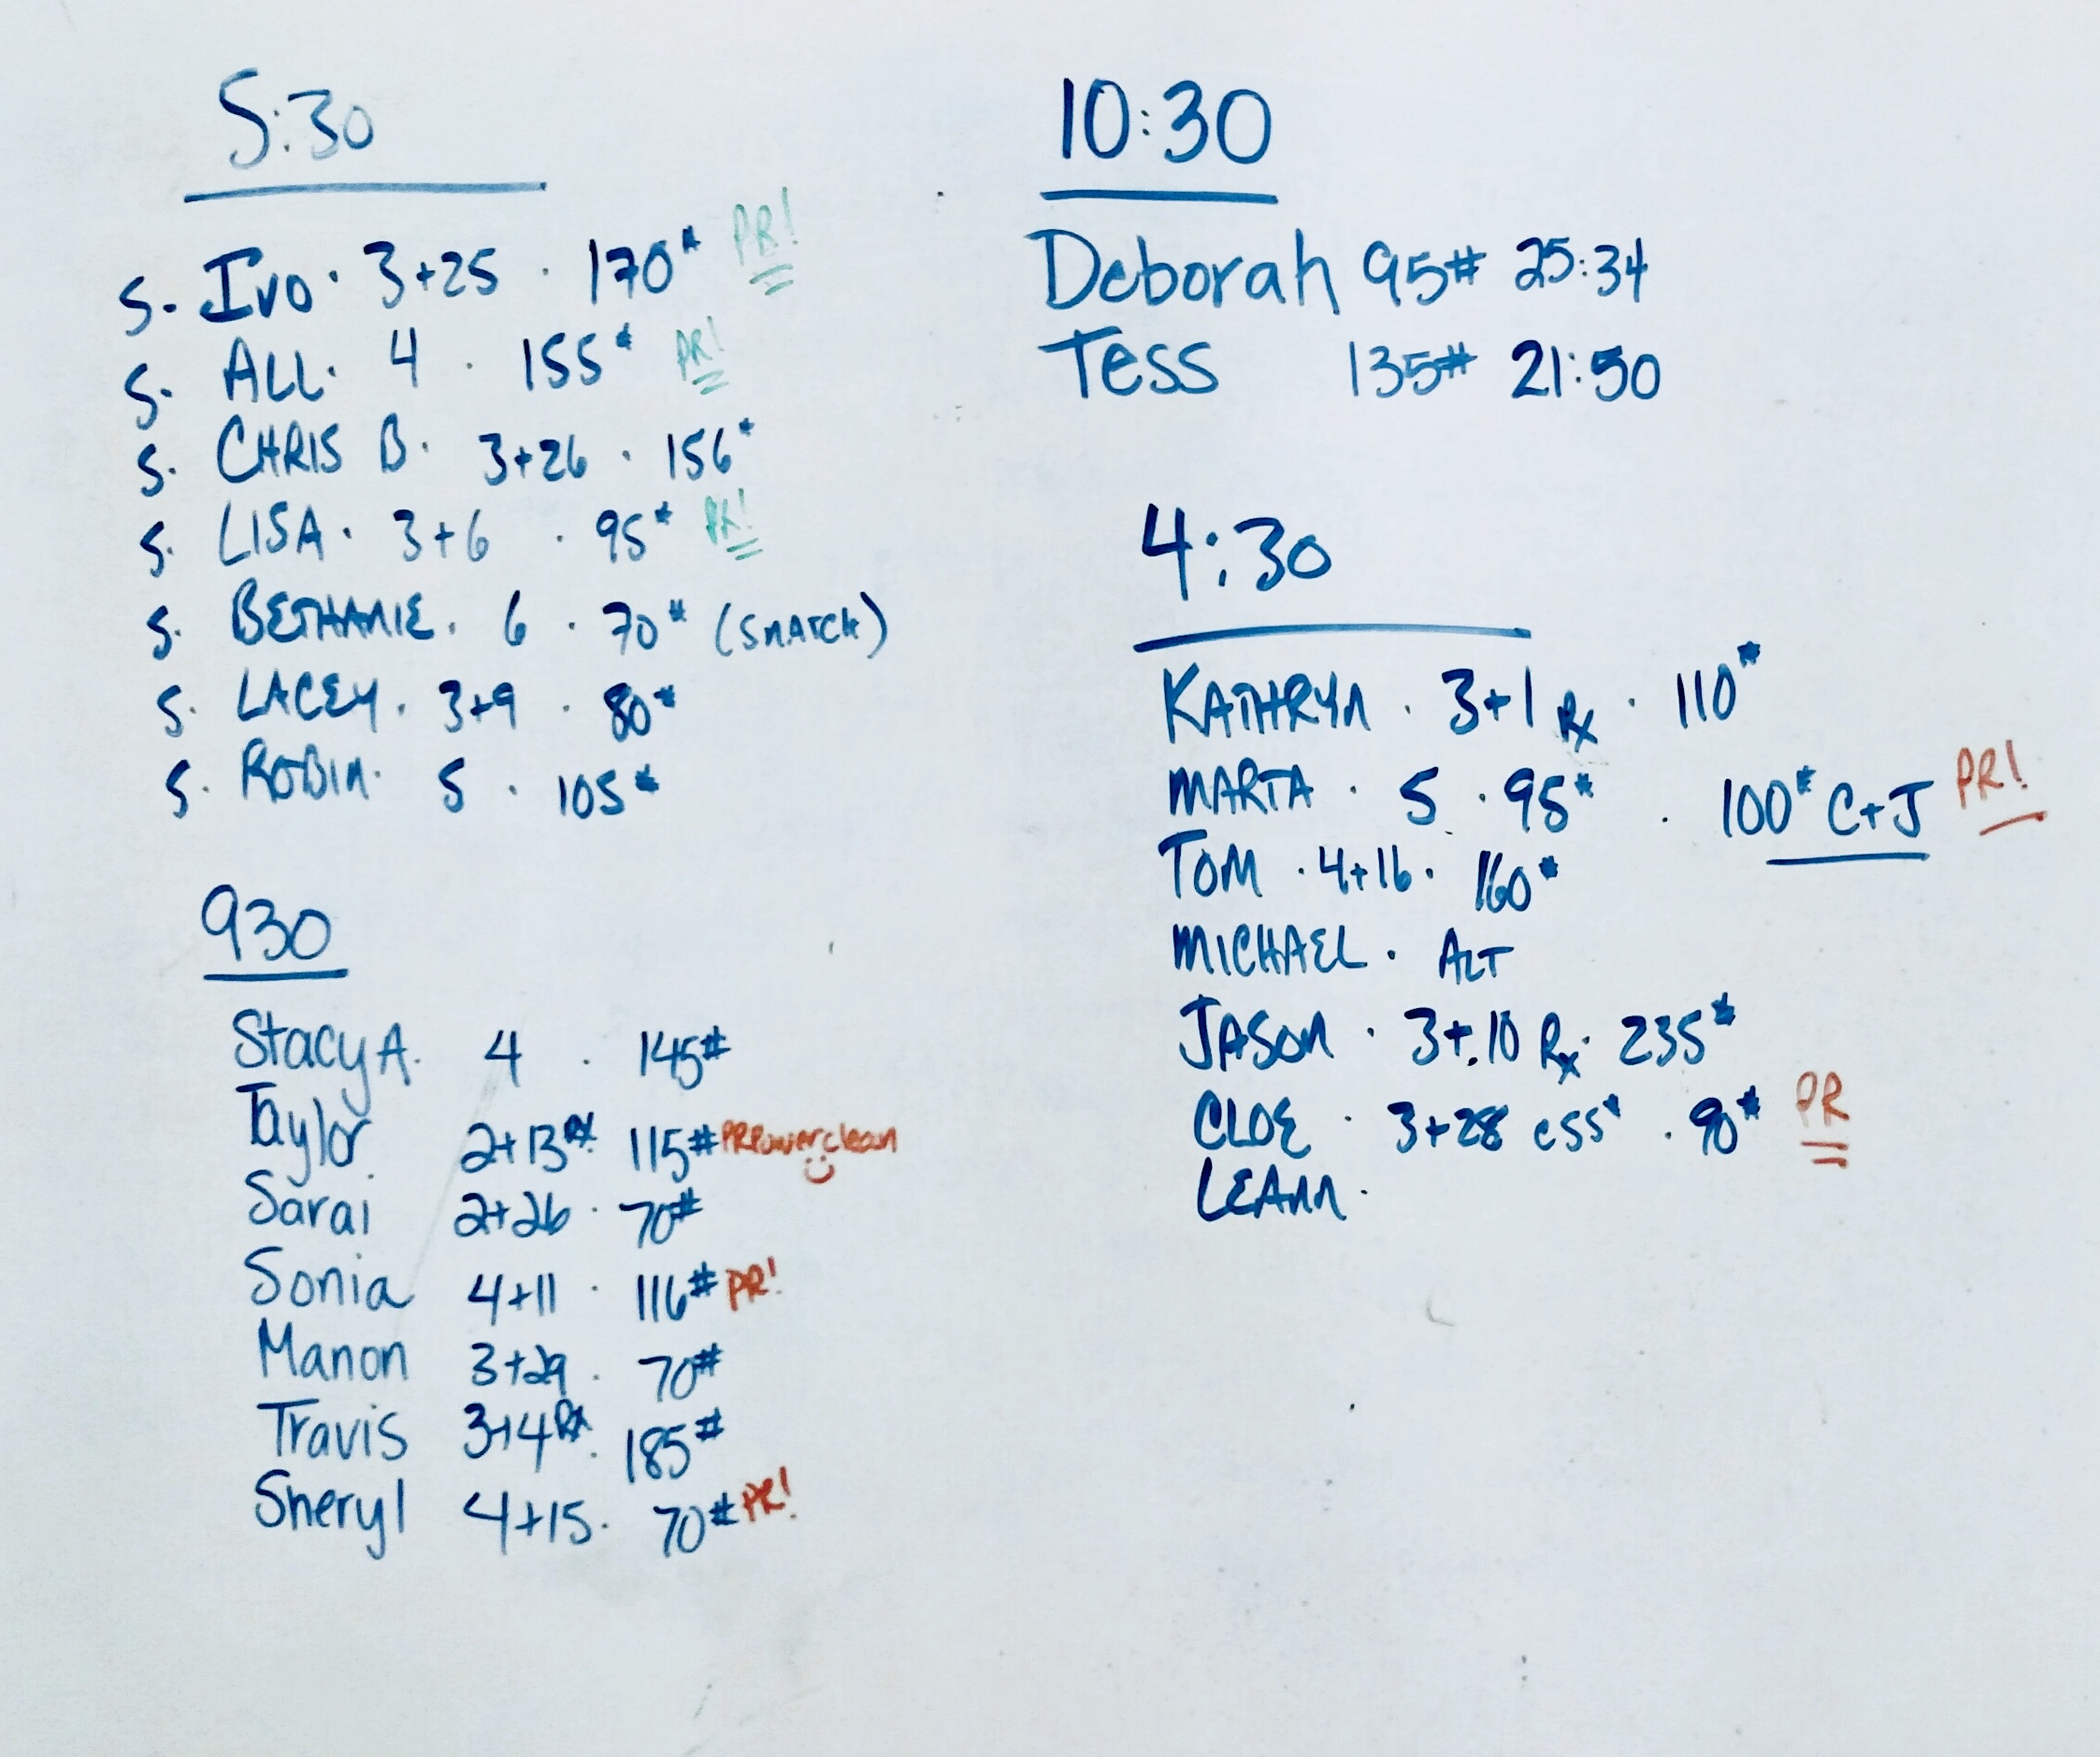 5:30
S. Ivo · 3+25 · 170# PR!
S. ALL · 4 · 155# PR!
S. CHRIS B · 3+26 · 156#
S. LISA · 3+6 · 95# PR!
S. BETHANIE · 6 · 70# (SNATCH)
S. LACEY · 3+9 · 80#
S. ROBIN · 5 · 105#
930
Stacy A. 4 · 145#
Taylor 2+13 Rx 115# PR Power clean
Sarai 2+26 · 70#
Sonia 4+11 · 116# PR!
Manon 3+29 · 70#
Travis 3+4 Rx · 185#
Sheryl 4+15 · 70# PR!
10:30
Deborah 95# 25:34
Tess 135# 21:50
4:30
KATHRYN · 3+1 Rx · 110#
MARTA · 5 · 95# · 100# C+J PR!
TOM · 4+16 · 160#
MICHAEL · ALT
JASON · 3+10 Rx · 235#
CLOE · 3+28 @55# · 90# PR
LEANN ·